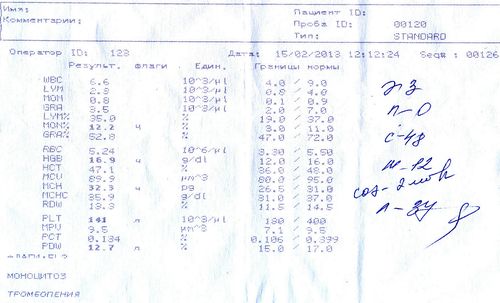 Имя: Пациент ID:
Комментарии: Проба ID: 00120
Тип: STANDARD
Оператор ID: 123 Дата: 15/02/2013 12:12:24 Seq# : 00126
Результ. флаги Един. Границы нормы
WBC 6.6 10^3/µl 4.0 / 9.0
LYM 2.3 10^3/µl 0.8 / 4.0
MON 0.8 10^3/µl 0.1 / 0.9
GRA 3.5 10^3/µl 2.0 / 7.0
LYM% 35.0 % 19.0 / 37.0
MON% 12.2 ч % 3.0 / 11.0
GRA% 52.8 % 47.0 / 72.0
RBC 5.24 10^6/µl 3.30 / 5.50
HGB 16.9 ч g/dl 12.0 / 16.0
HCT 47.1 % 36.0 / 48.0
MCV 89.9 µm^3 80.0 / 95.0
MCH 32.3 ч pg 26.5 / 31.0
MCHC 35.9 g/dl 31.0 / 37.0
RDW 13.3 % 11.5 / 14.5
PLT 141 л 10^3/µl 180 / 400
MPV 9.5 µm^3 7.1 / 9.5
PCT 0.134 % 0.106 / 0.399
PDW 12.7 л % 15.0 / 17.0
МОНОЦИТОЗ
ТРОМБОПЕНИЯ
э-3
п-0
с-48
м-12
соэ-2 мм/ч